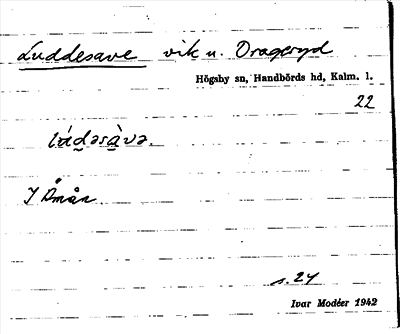 Luddesave vik u. Drageryd
Högsby sn, Handbörds hd, Kalm. l.
22
I Åmån
s. 24
Ivar Modéer 1942